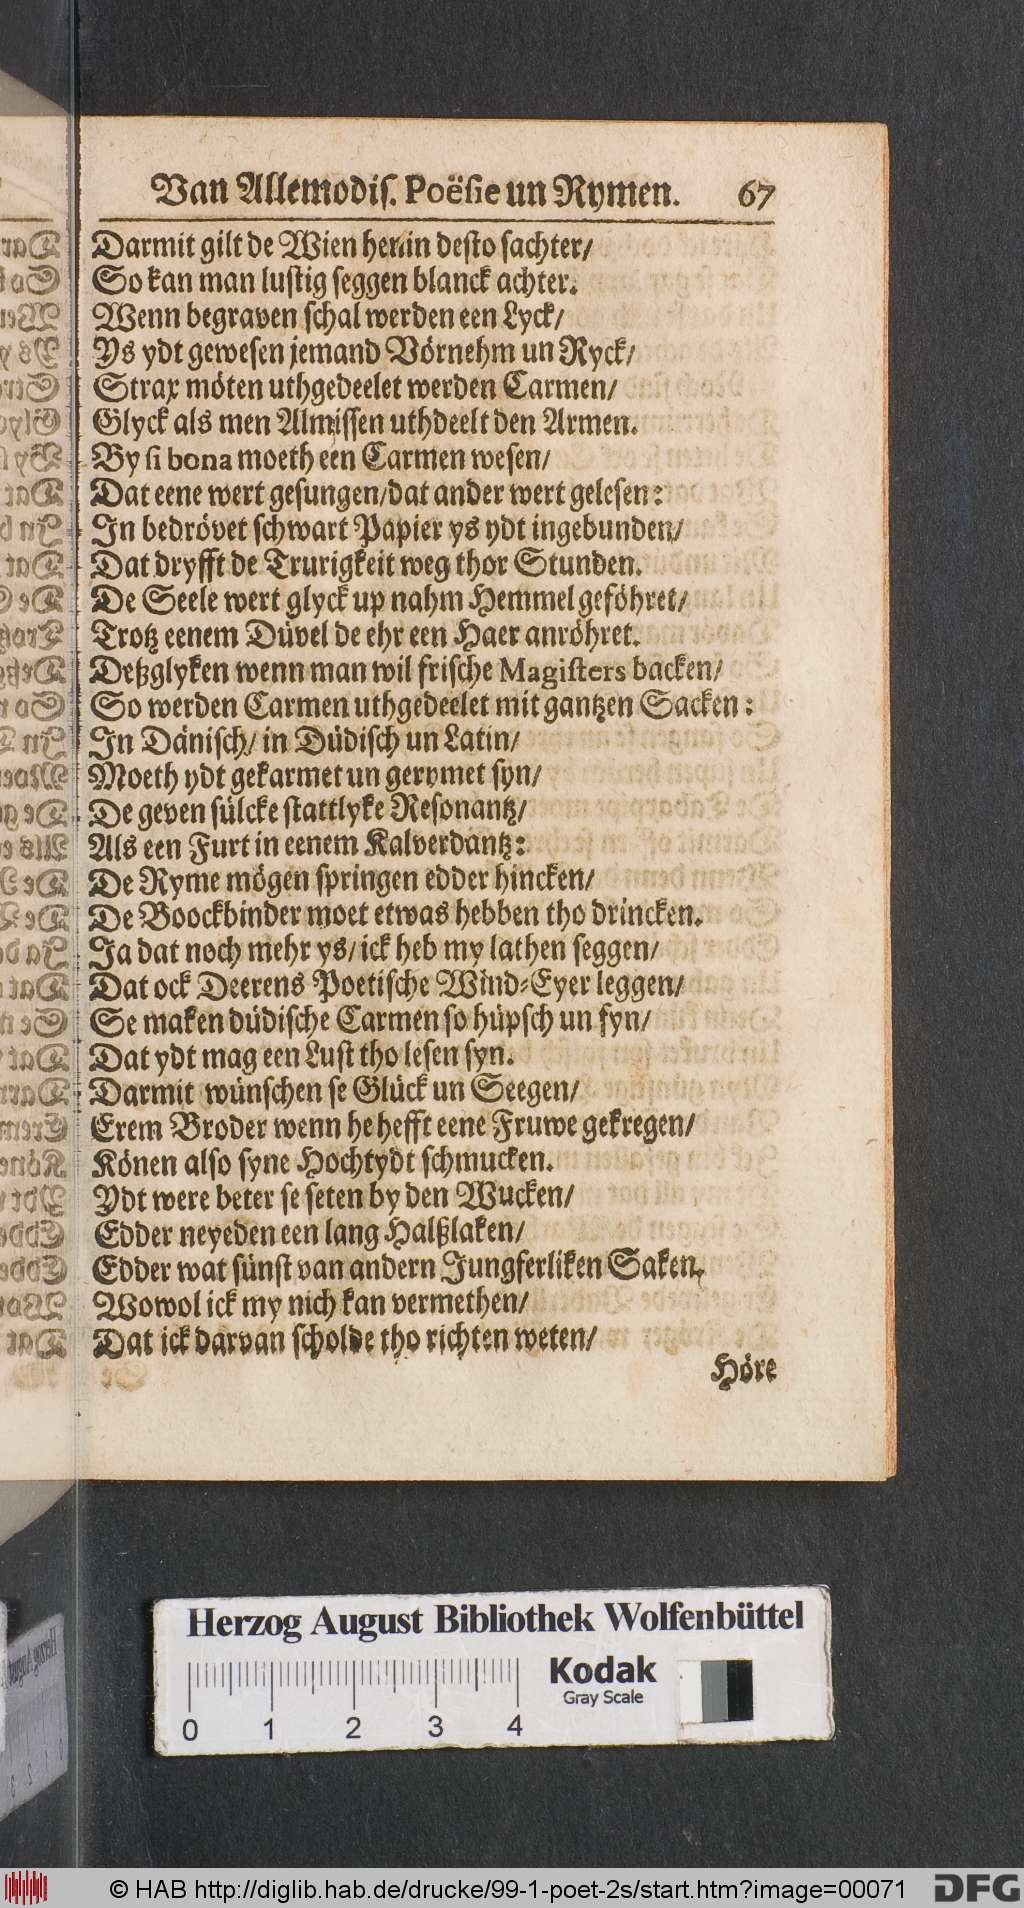 Van Allemodis. Poësie un Rymen. 67
Darmit gilt de Wien herin desto sachter/
So kan man lustig seggen blanck achter.
Wenn begraven schal werden een Lyck/
Ys ydt gewesen jemand Vörnehm un Ryck/
Strax möten uthgedeelet werden Carmen/
Glyck als men Almissen uthdeelt den Armen.
By si bona moeth een Carmen wesen/
Dat eene wert gesungen/dat ander wert gelesen:
In bedrövet schwart Papier ys ydt ingebunden/
Dat dryfft de Trurigkeit weg thor Stunden.
De Seele wert glyck up nahm Hemmel geföhret/
Trotz eenem Düvel de ehr een Haer anröhret.
Deßglyken wenn man wil frische Magisters backen/
So werden Carmen uthgedeelet mit gantzen Sacken:
In Dänisch/ in Düdisch un Latin/
Moeth ydt gekarmet un gerymet syn/
De geven sülcke stattlyke Resonantz/
Als een Furt in eenem Kalverdantz:
De Ryme mögen springen edder hincken/
De Boockbinder moet etwas hebben tho drincken.
Ja dat noch mehr ys/ ick heb my lathen seggen/
Dat ock Deerens Poetische Wind-Eyer leggen/
Se maken düdische Carmen so hüpsch un fyn/
Dat ydt mag een Lust tho lesen syn.
Darmit wünschen se Glück un Seegen/
Erem Broder wenn he hefft eene Fruwe gekregen/
Könen also syne Hochtydt schmucken.
Ydt were beter se seten by den Wucken/
Edder neyeden een lang Halßlaken/
Edder wat sünst van andern Jungferliken Saken.
Wowol ick my nich kan vermethen/
Dat ick darvan scholde tho richten weten/
Höre
Herzog August Bibliothek Wolfenbüttel
Kodak
Gray Scale
0 1 2 3 4
© HAB http://diglib.hab.de/drucke/99-1-poet-2s/start.htm?image=00071
DFG